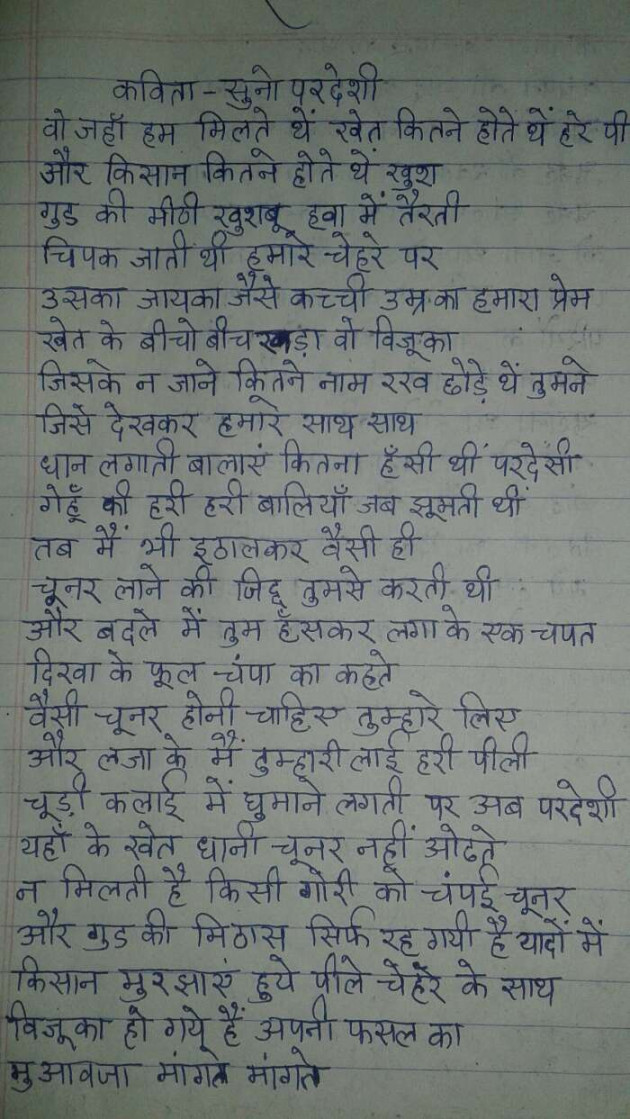 कविता - सुनो परदेशी
वो जहाँ हम मिलते थें खेत कितने होते थें हरे पी
और किसान कितने होते थें खुश
गुड की मीठी खुशबू हवा में तैरती
चिपक जाती थी हमारे चेहरे पर
उसका जायका जैसे कच्ची उम्र का हमारा प्रेम
खेत के बीचो बीच खड़ा वो विजूका
जिसके न जाने कितने नाम रख छोड़े थें तुमने
जिसे देखकर हमारे साथ साथ
धान लगाती बालाएं कितना हँसी थीं परदेसी
गेहूँ की हरी हरी बालियाँ जब झूमती थीं
तब मैं भी इठालकर वैसी ही
चूनर लाने की जिद्द तुमसे करती थी
और बदले में तुम हँसकर लगा के एक चपत
दिखा के फूल चंपा का कहते
वैसी चूनर होनी चाहिए तुम्हारे लिए
और लजा के मैं तुम्हारी लाई हरी पीली
चूड़ी कलाई में घुमाने लगती पर अब परदेशी
यहाँ के खेत धानी चूनर नहीं ओढते
न मिलती है किसी गोरी को चंपई चूनर
और गुड की मिठास सिर्फ रह गयी है यादों में
किसान मुरझाएं हुये पीले चेहरे के साथ
विजूका हो गये हैं अपनी फसल का
मुआवजा मांगते मांगते